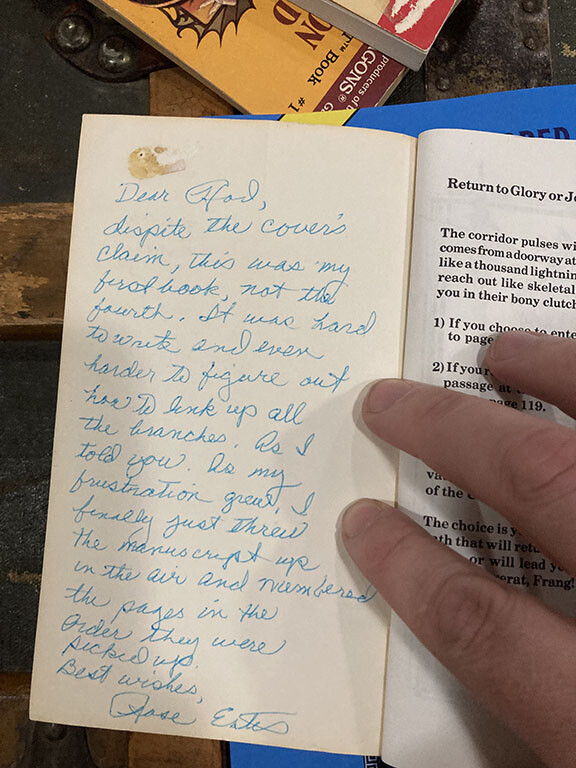 ON
D
R™ Book #1
GONS®
producers of t
RED
Dear Rod,
dispite the cover's
claim, this was my
first book, not the
fourth. It was hard
to write and even
harder to figure out
how to link up all
the branches. As I
told you. As my
frustration grew, I
finally just threw
the manuscript up
in the air and numbered
the pages in the
order they were
picked up.
Best wishes,
Rose Estes
Return to Glory or Je
The corridor pulses wi
comes from a doorway at
like a thousand lightnin
reach out like skeletal
you in their bony clutch
1) If you choose to ente
to page
2) If you r
passage at
page 119.
va
of the c
The choice is y
path that will retu
or will lead yo
erat, Frang!